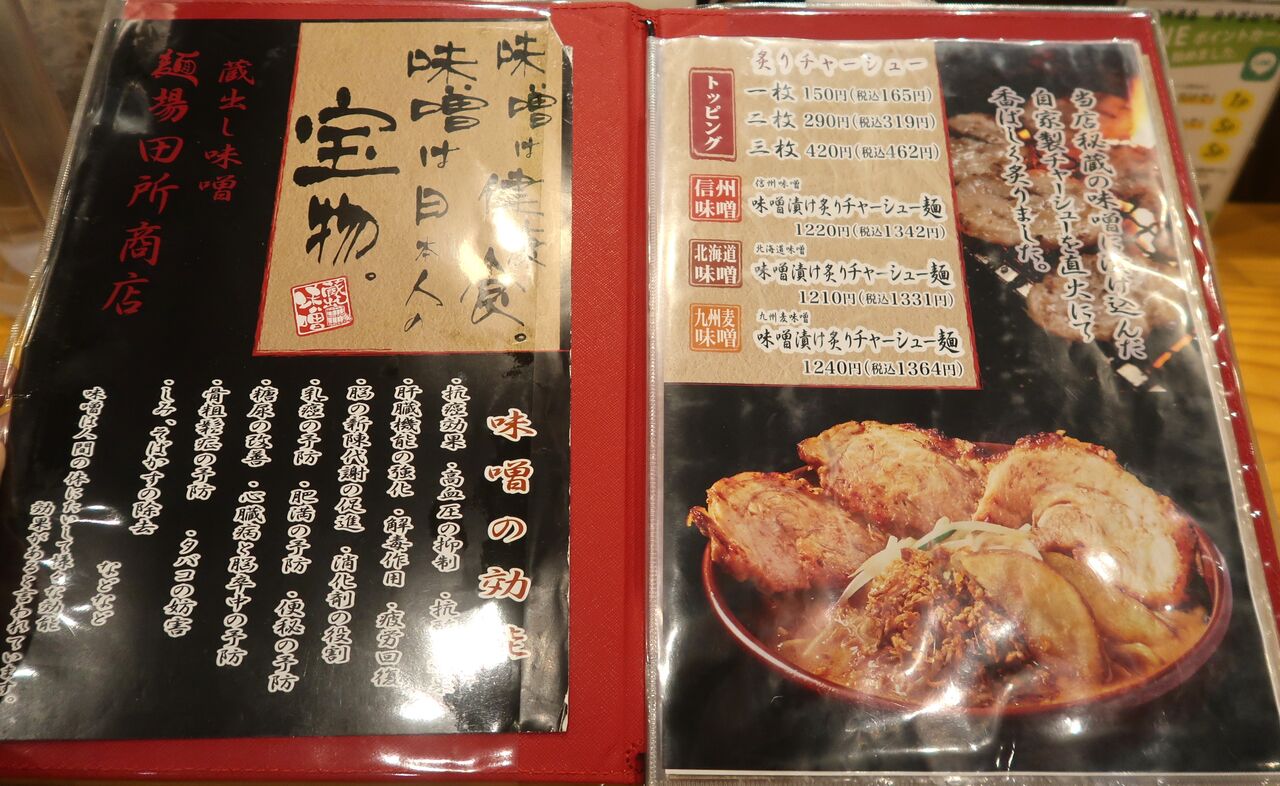 味噌は健康食。
味噌は日本人の
宝物。
蔵出し味噌
麺場田所商店
味噌の効能
・抗癌効果 ・高血圧の抑制
・肝臓機能の強化 ・解毒作用 ・疲労回復
・脳の新陳代謝の促進 ・消化剤の役割
・乳癌の予防 ・肥満の予防 ・便秘の予防
・糖尿の改善 ・心臓病と脳卒中の予防
・骨粗鬆症の予防 ・タバコの妨害
・しみ、そばかすの除去
などなど
味噌は人間の体にたいして様々な効能
効果があると言われています。
炙りチャーシュー
トッピング
一枚 150円(税込165円)
二枚 290円(税込319円)
三枚 420円(税込462円)
信州味噌
信州味噌
味噌漬け炙りチャーシュー麺
1220円(税込1342円)
北海道味噌
北海道味噌
味噌漬け炙りチャーシュー麺
1210円(税込1331円)
九州麦味噌
九州麦味噌
味噌漬け炙りチャーシュー麺
1240円(税込1364円)
当店秘蔵の味噌に漬け込んだ
自家製チャーシューを直火にて
香ばしく炙りました。